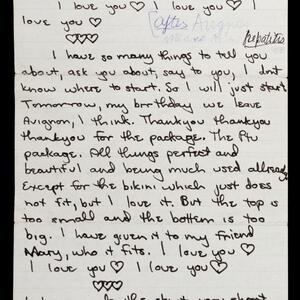 I love you ♡ I love you ♡ I
love you ♡
(after Avign
hepatitis
♡♡♡
I have so many things to tell you
about, ask you about, say to you, I dnt
know where to start. So I will just start
Tomorrow, my birthday we leave
Avignon, I think. Thankyou thankyou
thankyou for the package. The
package. All things perfect and
beautiful and being much used allready
Except for the bikini which just does
not fit, but I love it. But the top is
too small and the bottem is too
big. I have given it to my friend
Mary, who it fits. I love you ♡
I love you ♡ I love you ♡
♡♡♡